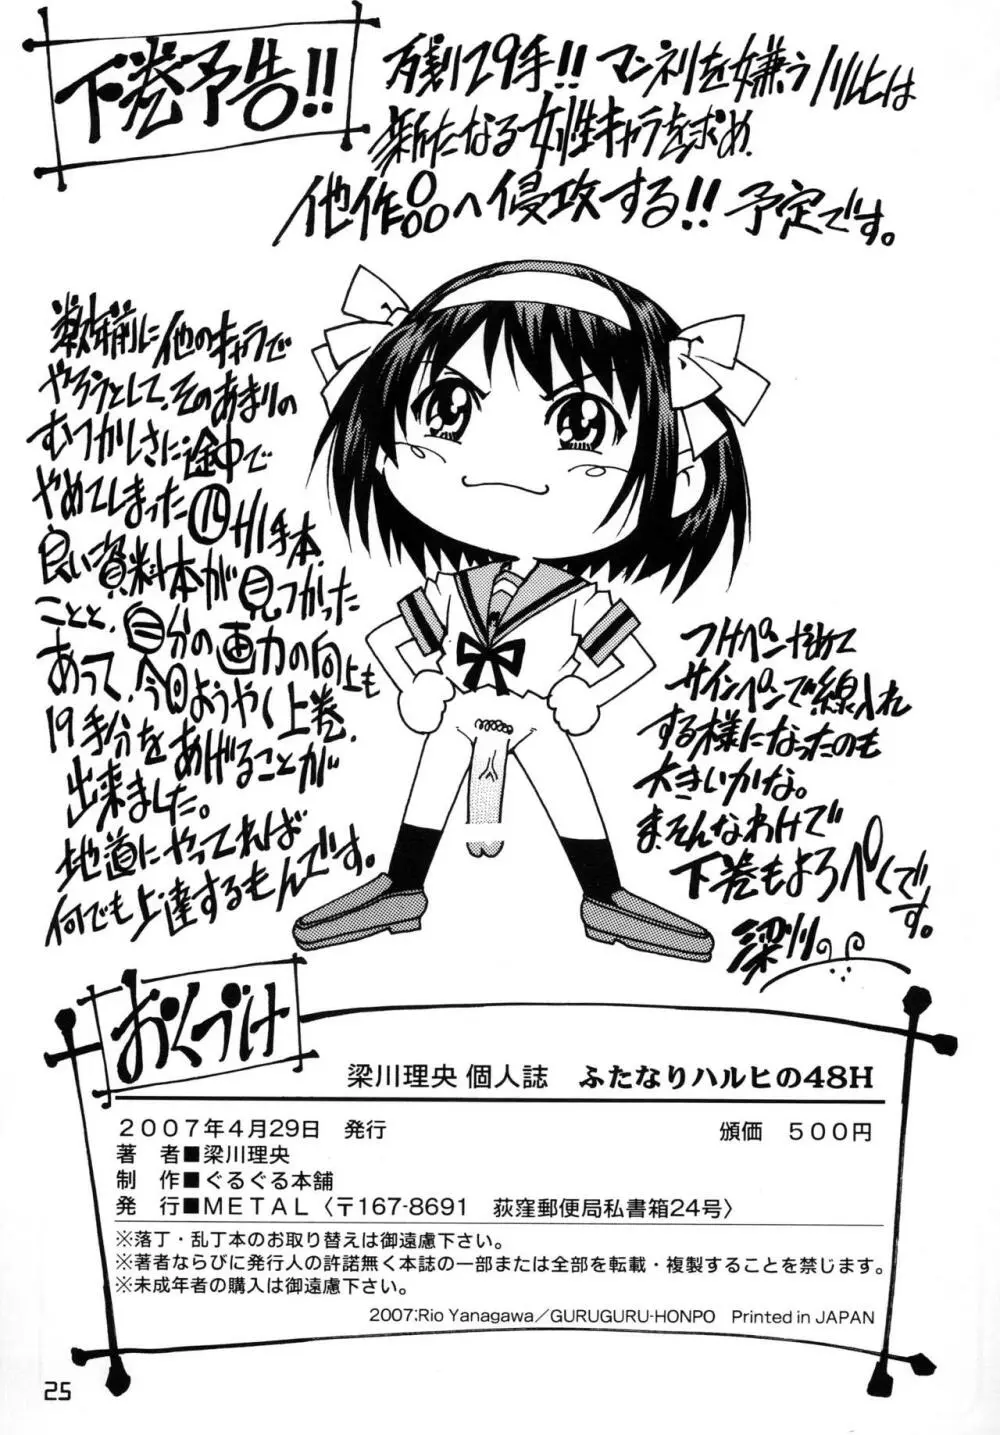 下巻予告!!
残り29手!! マンネリを嫌うハルヒは
新たなる女性キャラを求め
他作品へ侵攻する!! 予定です。
数年前に他のキャラで
やろうとして、そのあまりの
むつかしさに途中で
やめてしまった
良い資料本が見つかった
ことと、自分の画力の向上も
あって、今回ようやく上巻、
19手分をあげることが
出来ました。
地道にやってれば
何でも上達するもんです。
サインペンで線入れ
する様になったのも
大きいかな。
まぁそんなわけで
下巻もよろぺくです。
梁川。
おくづけ
梁川理央 個人誌 ふたなりハルヒの48H
2007年4月29日 発行 頒価 500円
著 者■梁川理央
制 作■ぐるぐる本舗
発 行■METAL〈〒167-8691 荻窪郵便局私書箱24号〉
※落丁・乱丁本のお取り替えは御遠慮下さい。
※著者ならびに発行人の許諾無く本誌の一部または全部を転載・複製することを禁じます。
※未成年者の購入は御遠慮下さい。
2007:Rio Yanagawa/GURUGURU-HONPO Printed in JAPAN
25